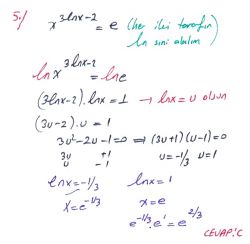 5./ x^(3lnx-2) = e (her iki tarafın
ln sini alalım)
ln x^(3lnx-2) = lne
(3lnx-2).lnx = 1 → lnx = u olsun
(3u-2).u = 1
3u²-2u-1=0 ⇒ (3u+1)(u-1)=0
3u +1 u=-1/3 u=1
u -1
lnx=-1/3 lnx=1
x=e^(-1/3) x=e
e^(-1/3).e¹=e^(2/3)
CEVAP:C